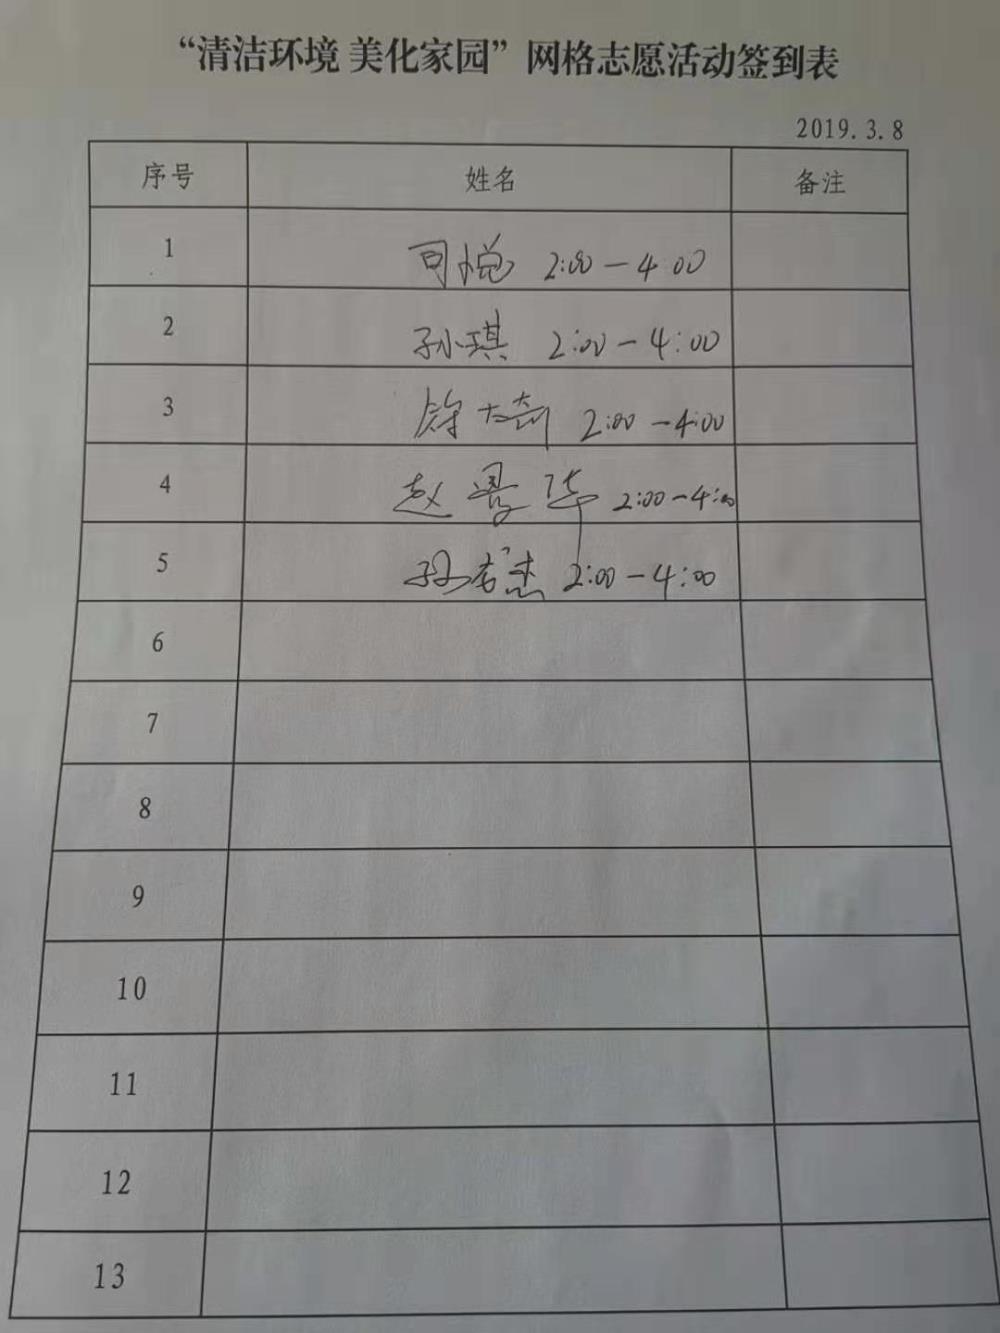 “清洁环境 美化家园”网格志愿活动签到表
2019.3.8
序号 姓名 备注
1 司悦 2:00-4:00
2 孙琪 2:00-4:00
3 徐大 2:00-4:00
4 赵景华 2:00-4:00
5 孙杰 2:00-4:00
6
7
8
9
10
11
12
13